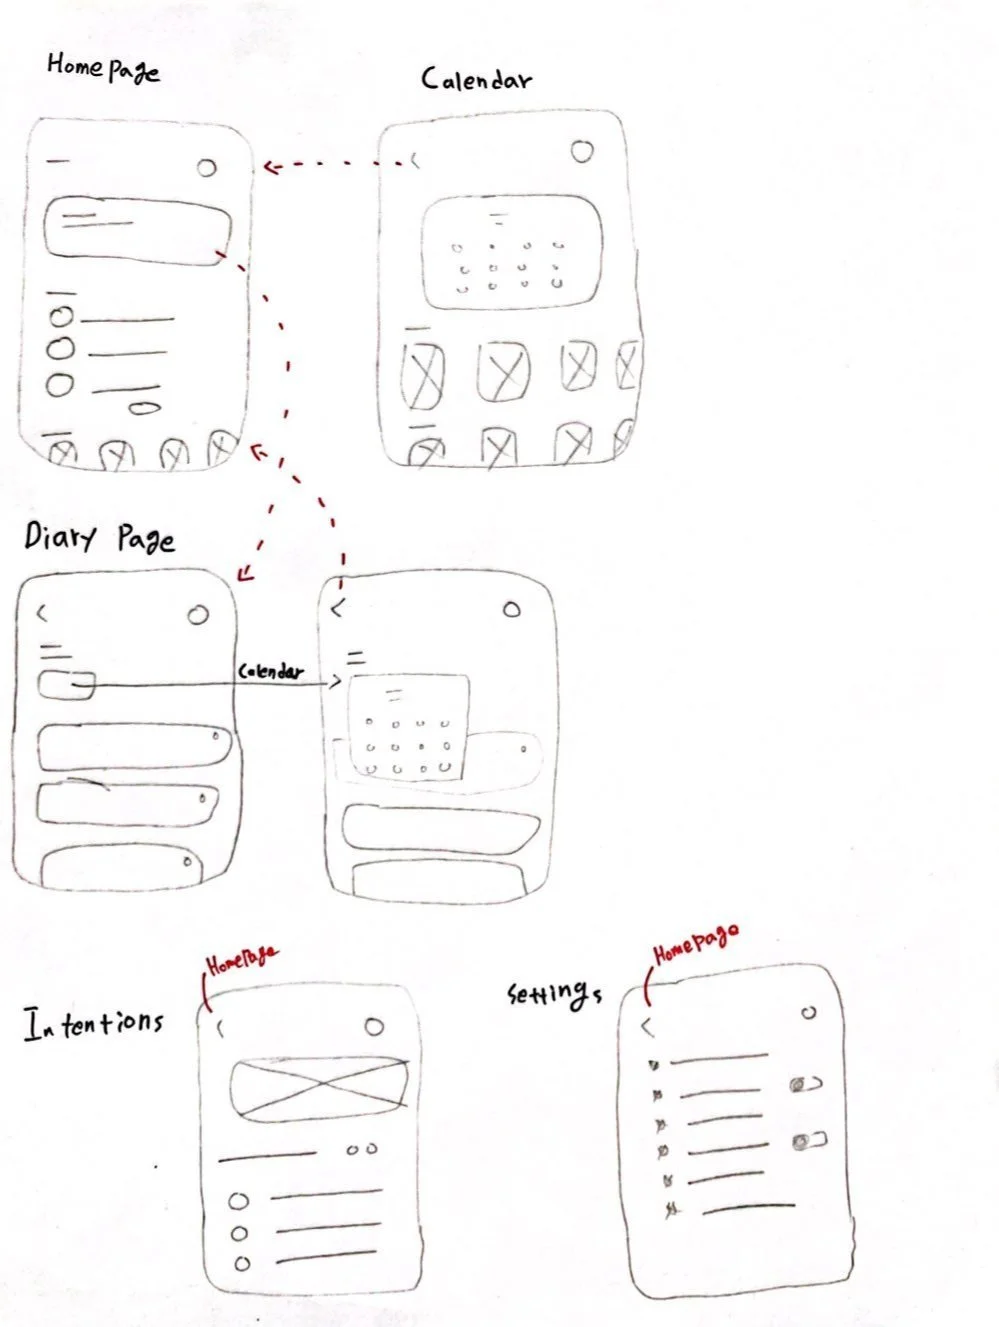 Homepage
Calendar
Diary Page
Calendar
Homepage
Intentions
Homepage
Settings